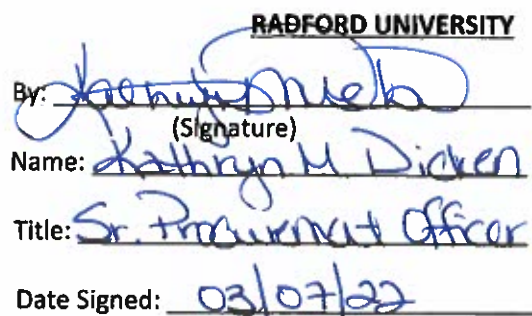 RADFORD UNIVERSITY
By:
(Signature)
Name: Kathryn M Dicken
Title: Sr. Procurement Officer
Date Signed: 03/07/22